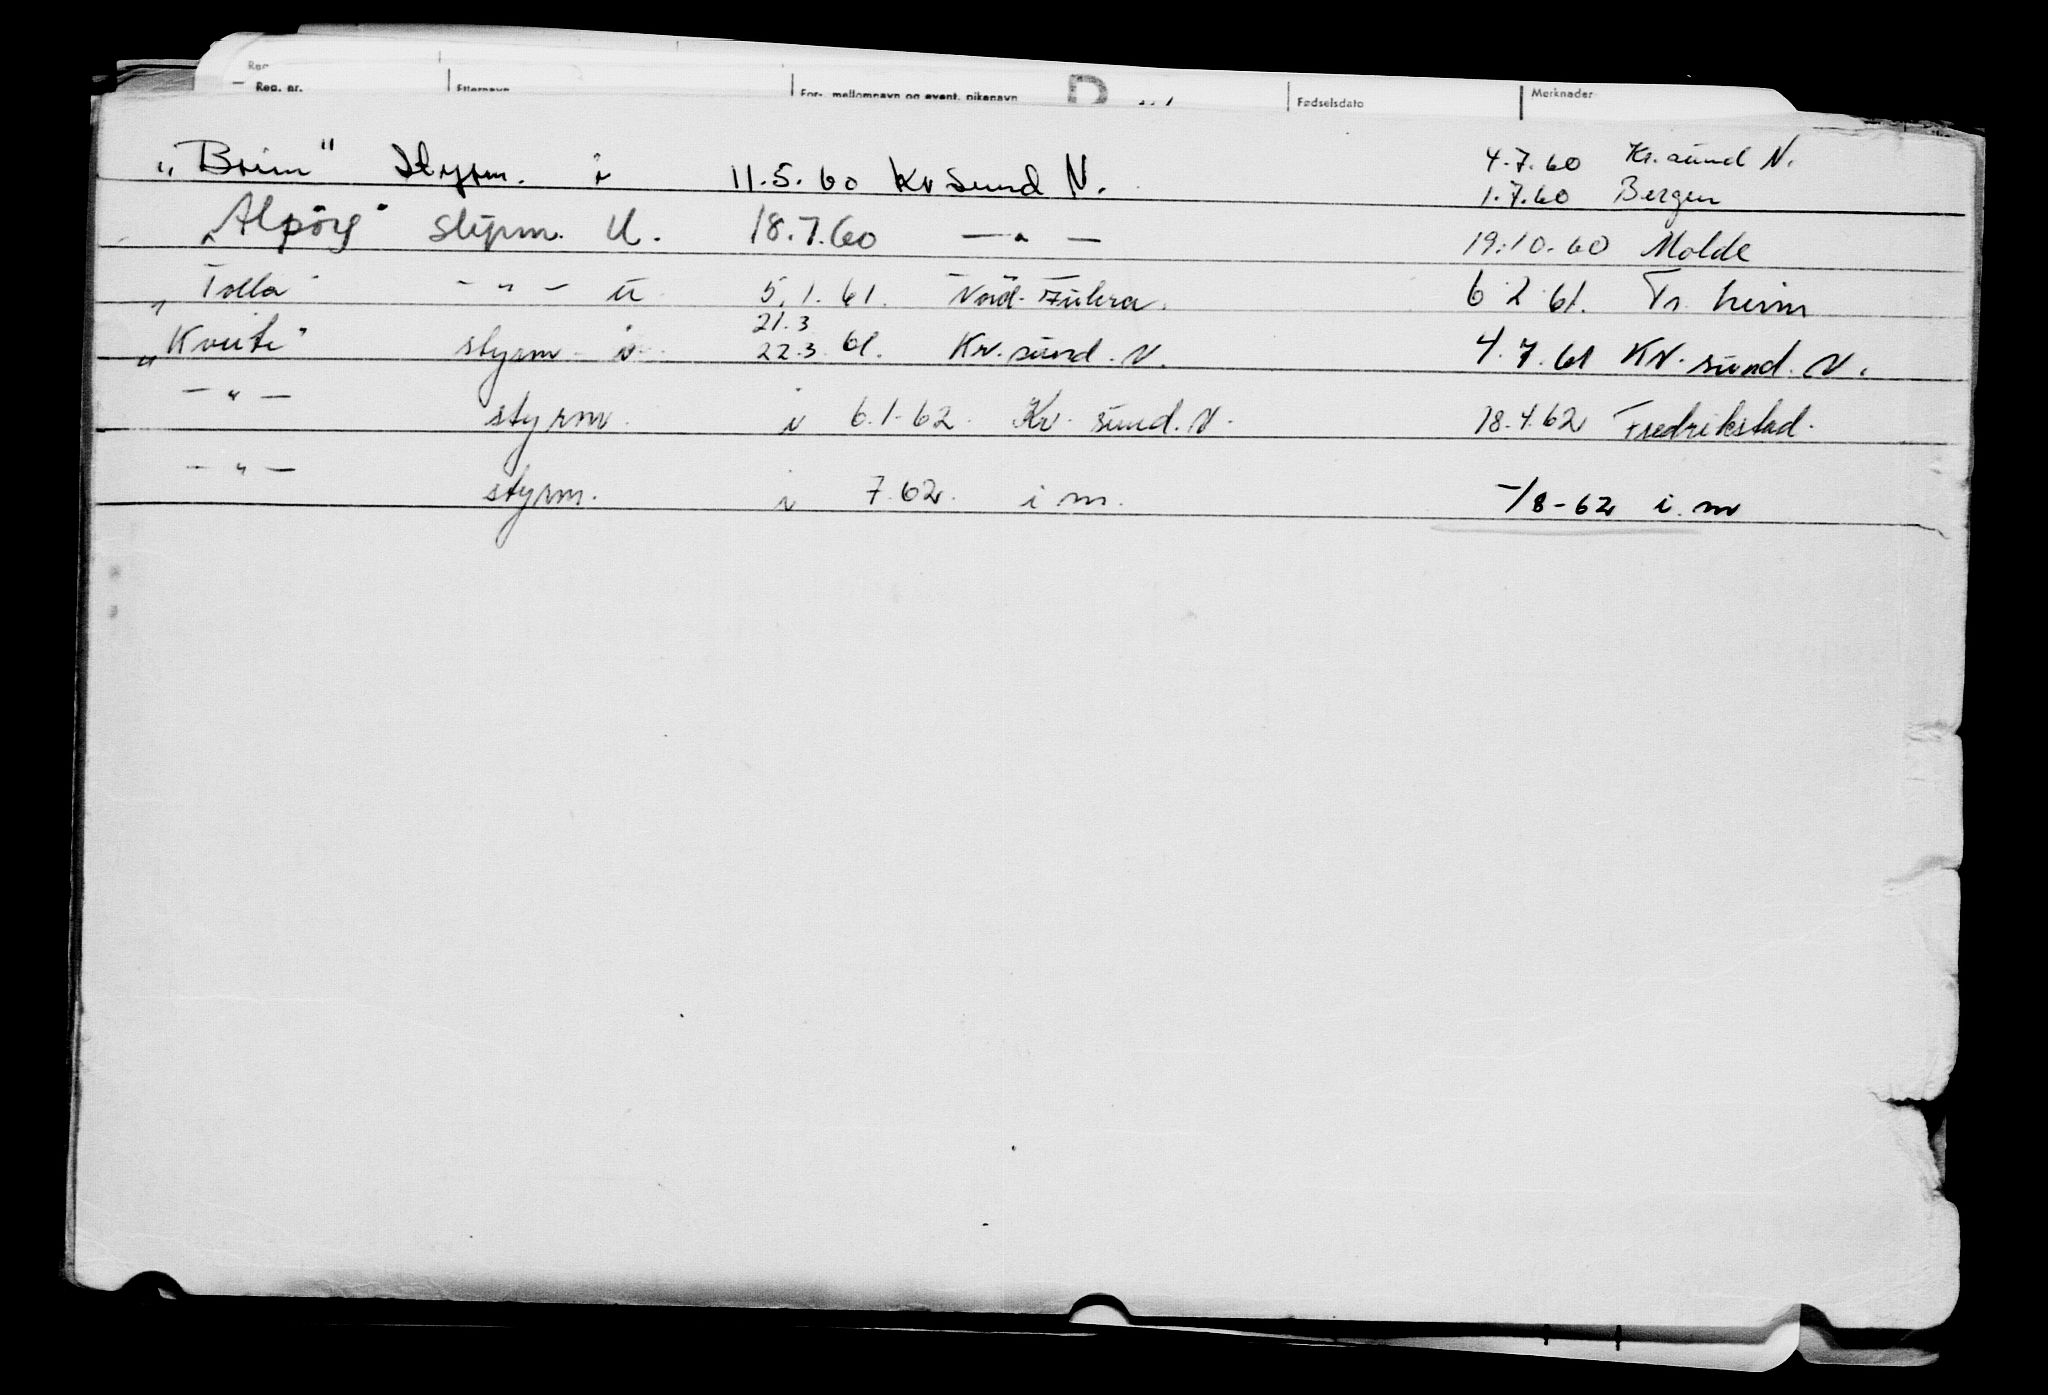 Reg. nr. Etternavn For-, mellomnavn og event. pikenavn Fødselsdato Merknader
„Brim" Styrm. i 11.5.60 Kr sund N. 4.7.60 Kr. sund N.
1.7.60 Bergen
„Alpöy" styrm. U. 18.7.60 — " — 19.10.60 Molde
„Tolla" - " - U 5.1.61. 6.2.61. Tr. heim
21.3
„Kvite" styrm i 22.3.61. Kr. sund. N. 4.7.61 Kr. sund. N.
— " — styrm. i 6.1.62. Kr. sund. N. 18.4.62 Fredrikstad.
— " — styrm. i 7.62. i m. -/8-62 i. m